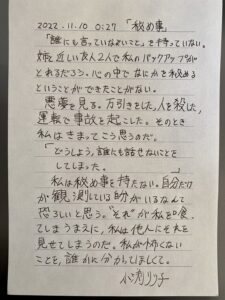 2022.11.10 0:27 「秘め事」
「誰にも言っていないこと」を持っていない。
姉と近しい友人2人で私のバックアップが
とれるだろう。心の中でなにかを秘める
ということができたことがない。
悪夢を見る。万引きをした、人を殺した、
運転で事故を起こした。そのとき
私はきまってこう思うのだ。
「どうしよう、誰にも話せないことを
してしまった。」
私は秘め事を持たない。自分だけ
が観測している自分がいるなんて
恐ろしいと思う。"それ"が私を食
てしまうまえに、私は他人にそれを
見せてしまうのだ。私が怖くない
ことを、誰かに分かってほしくて。